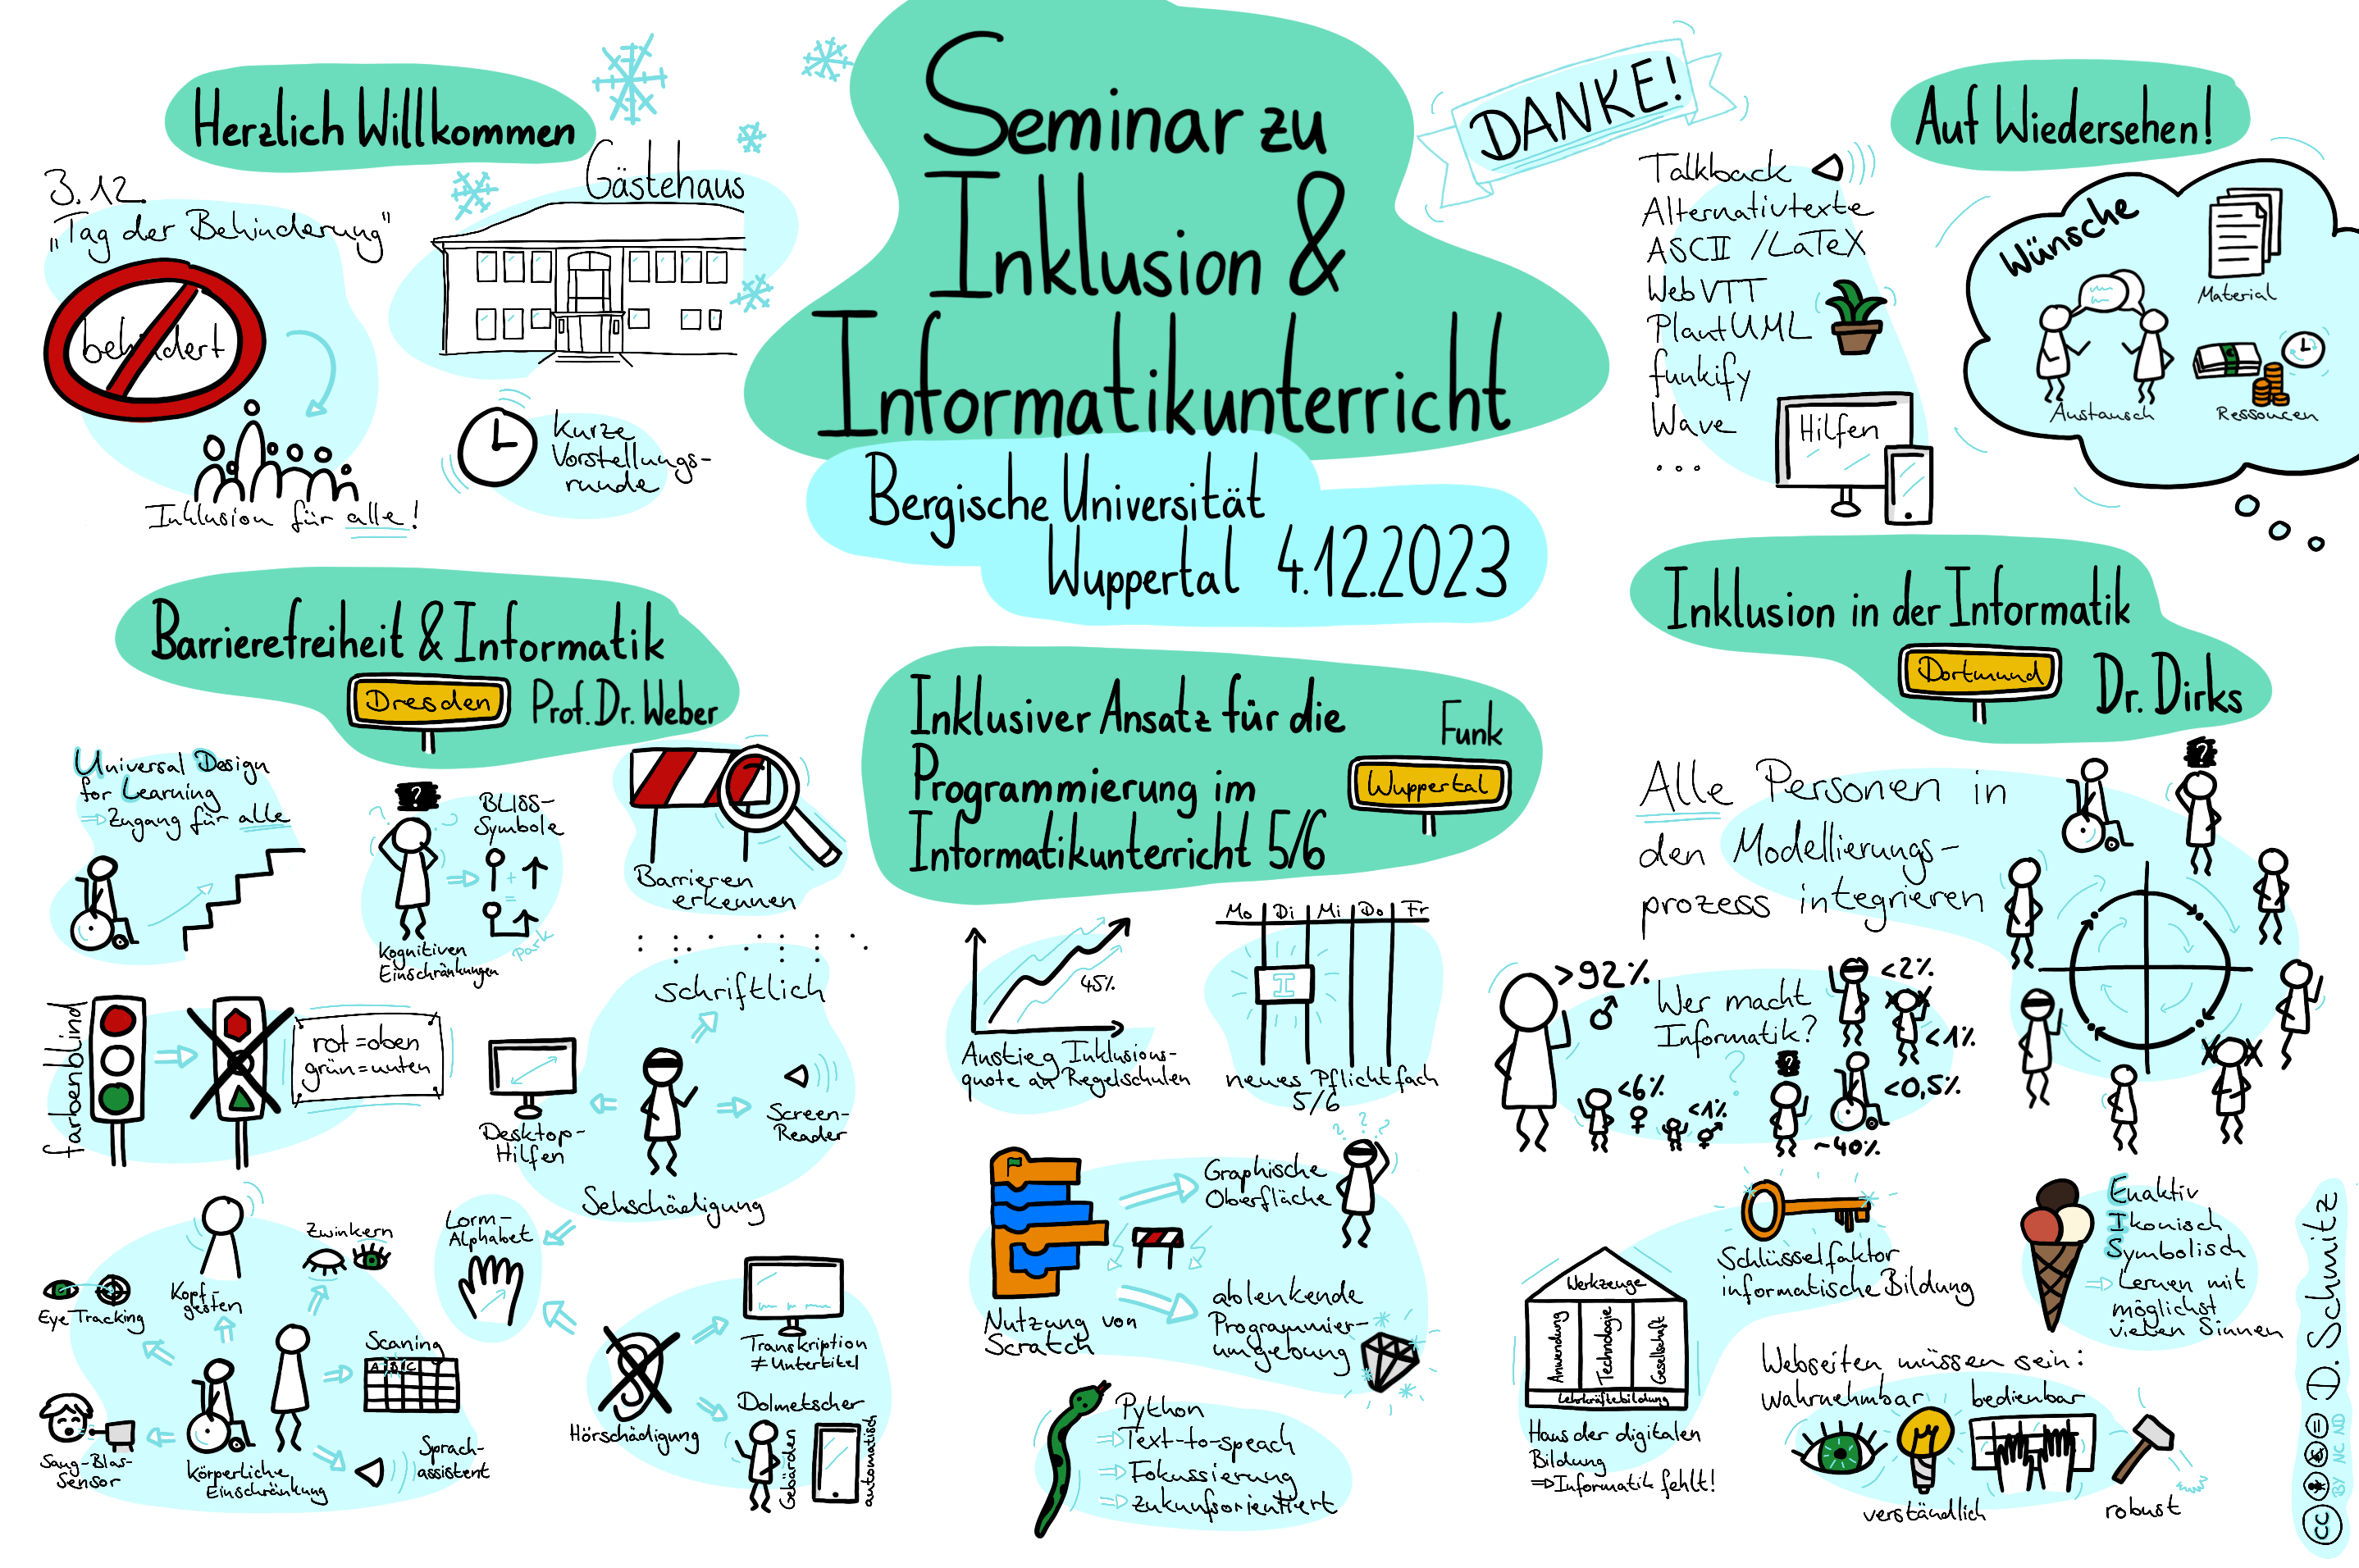 Herzlich Willkommen
3.12.
„Tag der Behinderung"
behindert
Inklusion für alle!
Gästehaus
Kurze
Vorstellungs-
runde
Seminar zu
Inklusion &
Informatikunterricht
Bergische Universität
Wuppertal 4.12.2023
DANKE!
Auf Wiedersehen!
Talkback
Alternativtexte
ASCII /LaTeX
WebVTT
PlantUML
funkify
Wave
...
Hilfen
Wünsche
Material
Austausch
Ressourcen
Barrierefreiheit & Informatik
Dresden
Prof. Dr. Weber
Universal Design
for Learning
⇒ Zugang für alle
?
Kognitiven
Einschränkungen
BLISS-
Symbole
+
=
Park
Barrieren
erkennen
farbenblind
rot=oben
grün=unten
schriftlich
Desktop-
Hilfen
Screen-
Reader
Sehschädigung
Lorm-
Alphabet
Zwinkern
Kopf-
gesten
Eye Tracking
Saug-Blas-
Sensor
Körperliche
Einschränkung
Scaning
A B C
Sprach-
assistent
Hörschädigung
Transkription
≠ Untertitel
Dolmetscher
Gebärden
automatisch
Inklusiver Ansatz für die
Programmierung im
Informatikunterricht 5/6
Funk
Wuppertal
45%
Anstieg Inklusions-
quote an Regelschulen
Mo Di Mi Do Fr
I
neues Pflichtfach
5/6
Nutzung von
Scratch
Graphische
Oberfläche
? ? ?
ablenkende
Programmier-
umgebung
Python
⇒ Text-to-speach
⇒ Fokussierung
⇒ zukunfsorientiert
Inklusion in der Informatik
Dortmund
Dr. Dirks
Alle Personen in
den Modellierungs-
prozess integrieren
?
>92% ♂
Wer macht
Informatik?
?
<2%
<1%
<6% ♀
<1% ⚥
?
~40%
<0,5%
Schlüsselfaktor
informatische Bildung
Werkzeuge
Anwendung
Technologie
Gesellschaft
Lehrkräftebildung
Haus der digitalen
Bildung
⇒ Informatik fehlt!
Enaktiv
Ikonisch
Symbolisch
⇒ Lernen mit
möglichst
vielen Sinnen
Webseiten müssen sein:
wahrnehmbar
bedienbar
verständlich
robust
D. Schmitz
cc
BY NC ND